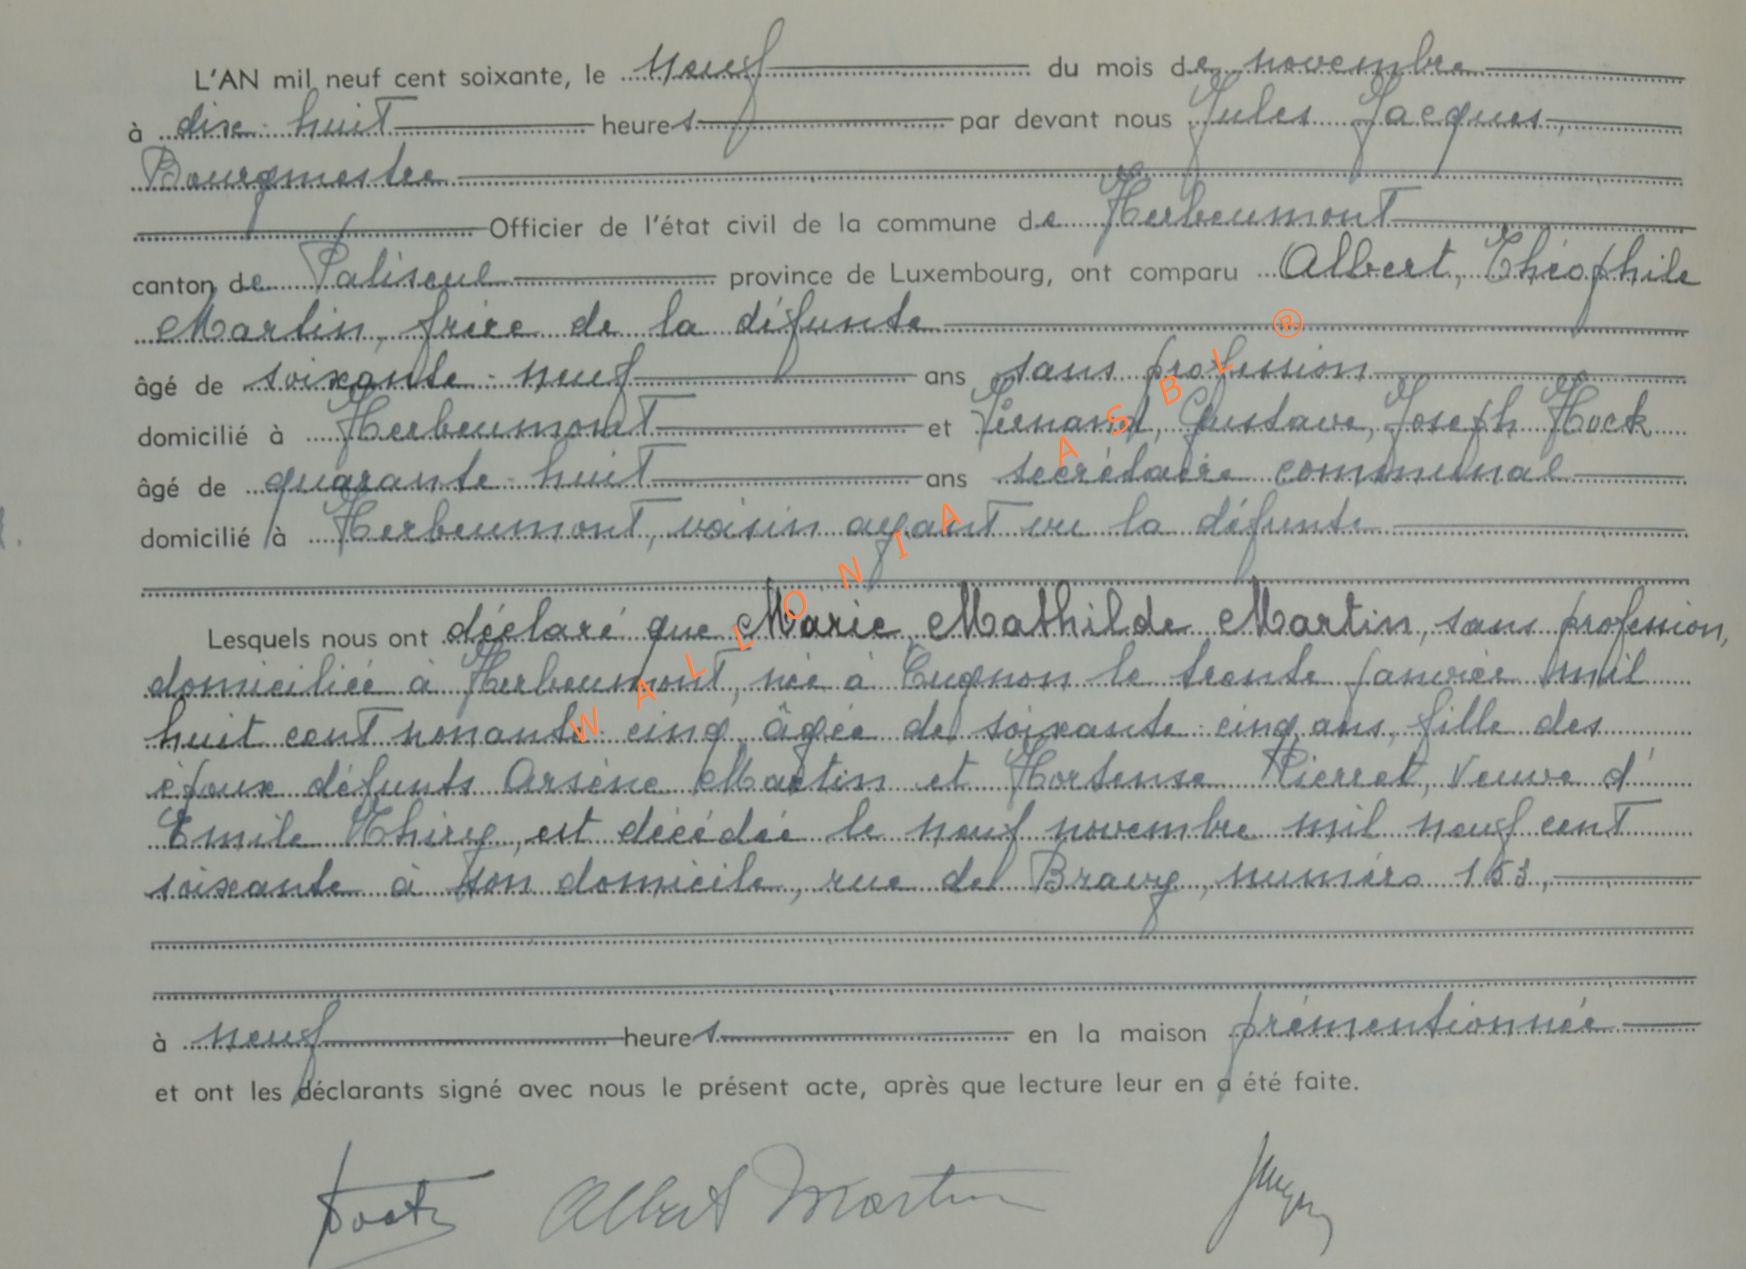 L'AN mil neuf cent soixante, le neuf du mois de novembre
à dix-huit heures par devant nous Jules Jacques,
Bourgmestre
Officier de l'état civil de la commune de Herbeumont
canton de Paliseul province de Luxembourg, ont comparu Albert, Théophile
Martin, frère de la défunte
âgé de soixante-neuf ans sans profession
domicilié à Herbeumont et Fernand, Gustave, Joseph Hock
âgé de quarante-huit ans secrétaire communal
domicilié à Herbeumont, voisin ayant vu la défunte
Lesquels nous ont déclaré que Marie, Mathilde Martin, sans profession,
domiciliée à Herbeumont, née à Cugnon le trente janvier mil
huit cent nonante-cinq, âgée de soixante-cinq ans, fille des
époux défunts Arsène Martin et Hortense Pierret, veuve d'
Emile Thiry, est décédée le neuf novembre mil neuf cent
soixante à son domicile, rue de Bravy, numéro 163,
à neuf heures en la maison prémentionnée
et ont les déclarants signé avec nous le présent acte, après que lecture leur en a été faite.
Albert Martin
WALLONIA ASBL ®